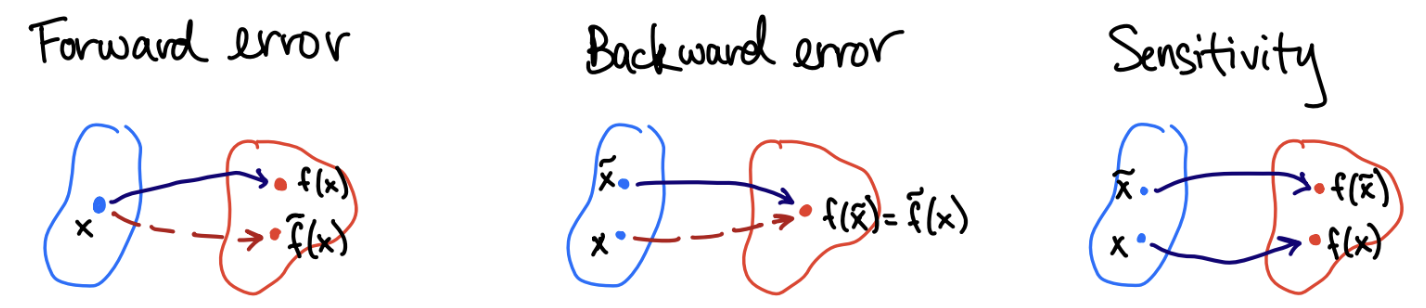 Forward error
x
f(x)
f̃(x)
Backward error
x̃
x
f(x̃) = f̃(x)
Sensitivity
x̃
x
f(x̃)
f(x)